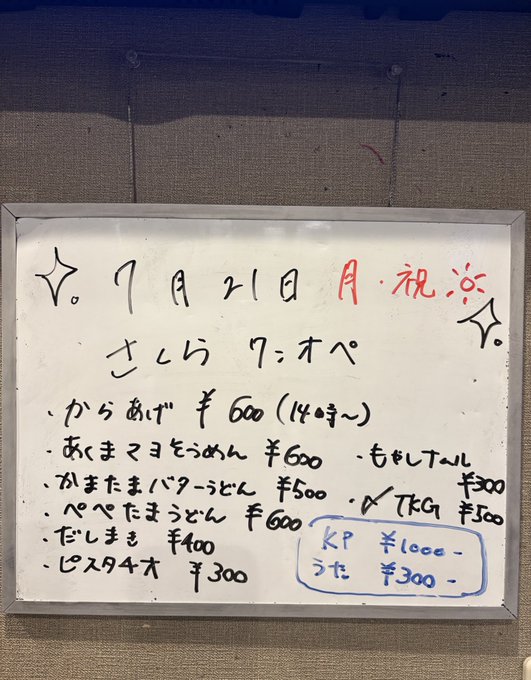 7月21日 月・祝
さくら ワンオペ
・からあげ ¥600(14時〜)
・あくまマヨそうめん ¥600
・かまたまバターうどん ¥500
・ぺぺたまうどん ¥600
・だしまき ¥400
・ピスタチオ ¥300
・もやしナムル
¥300
・〆TKG ¥500
KP ¥1000-
うた ¥300-